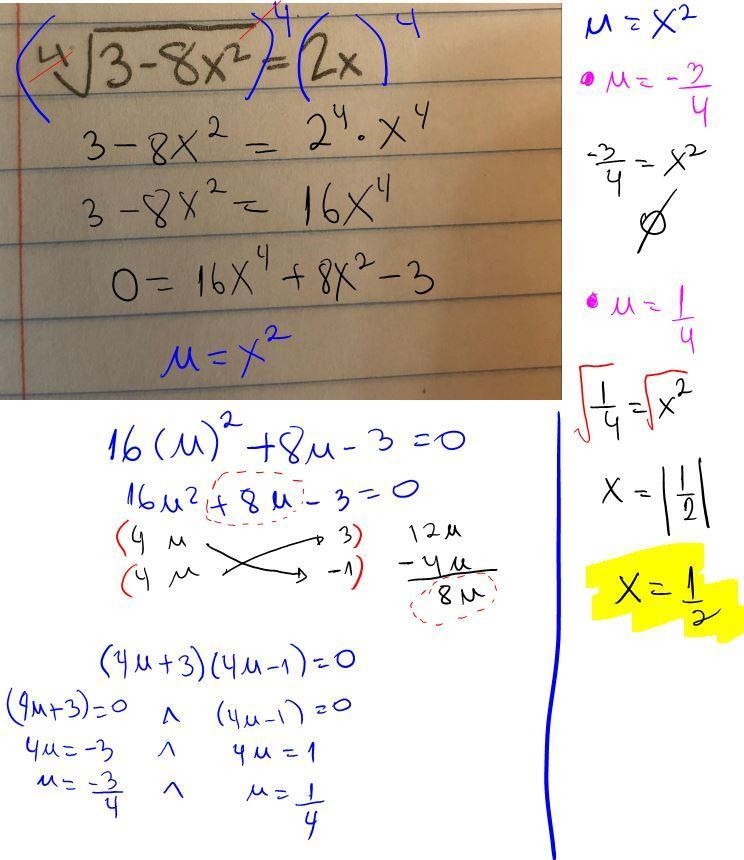 (⁴√(3-8x²))⁴ = (2x)⁴
3-8x² = 2⁴·x⁴
3-8x² = 16x⁴
0 = 16x⁴+8x²-3
u = x²
16(u)²+8u-3=0
16u²+8u-3=0
(4u 3) 12u
(4u -1) -4u
8u
(4u+3)(4u-1)=0
(4u+3)=0 ∧ (4u-1)=0
4u=-3 ∧ 4u=1
u=-3/4 ∧ u=1/4
u=x²
• u=-3/4
-3/4=x²
∅
• u=1/4
√(1/4)=√x²
x=|1/2|
x=1/2